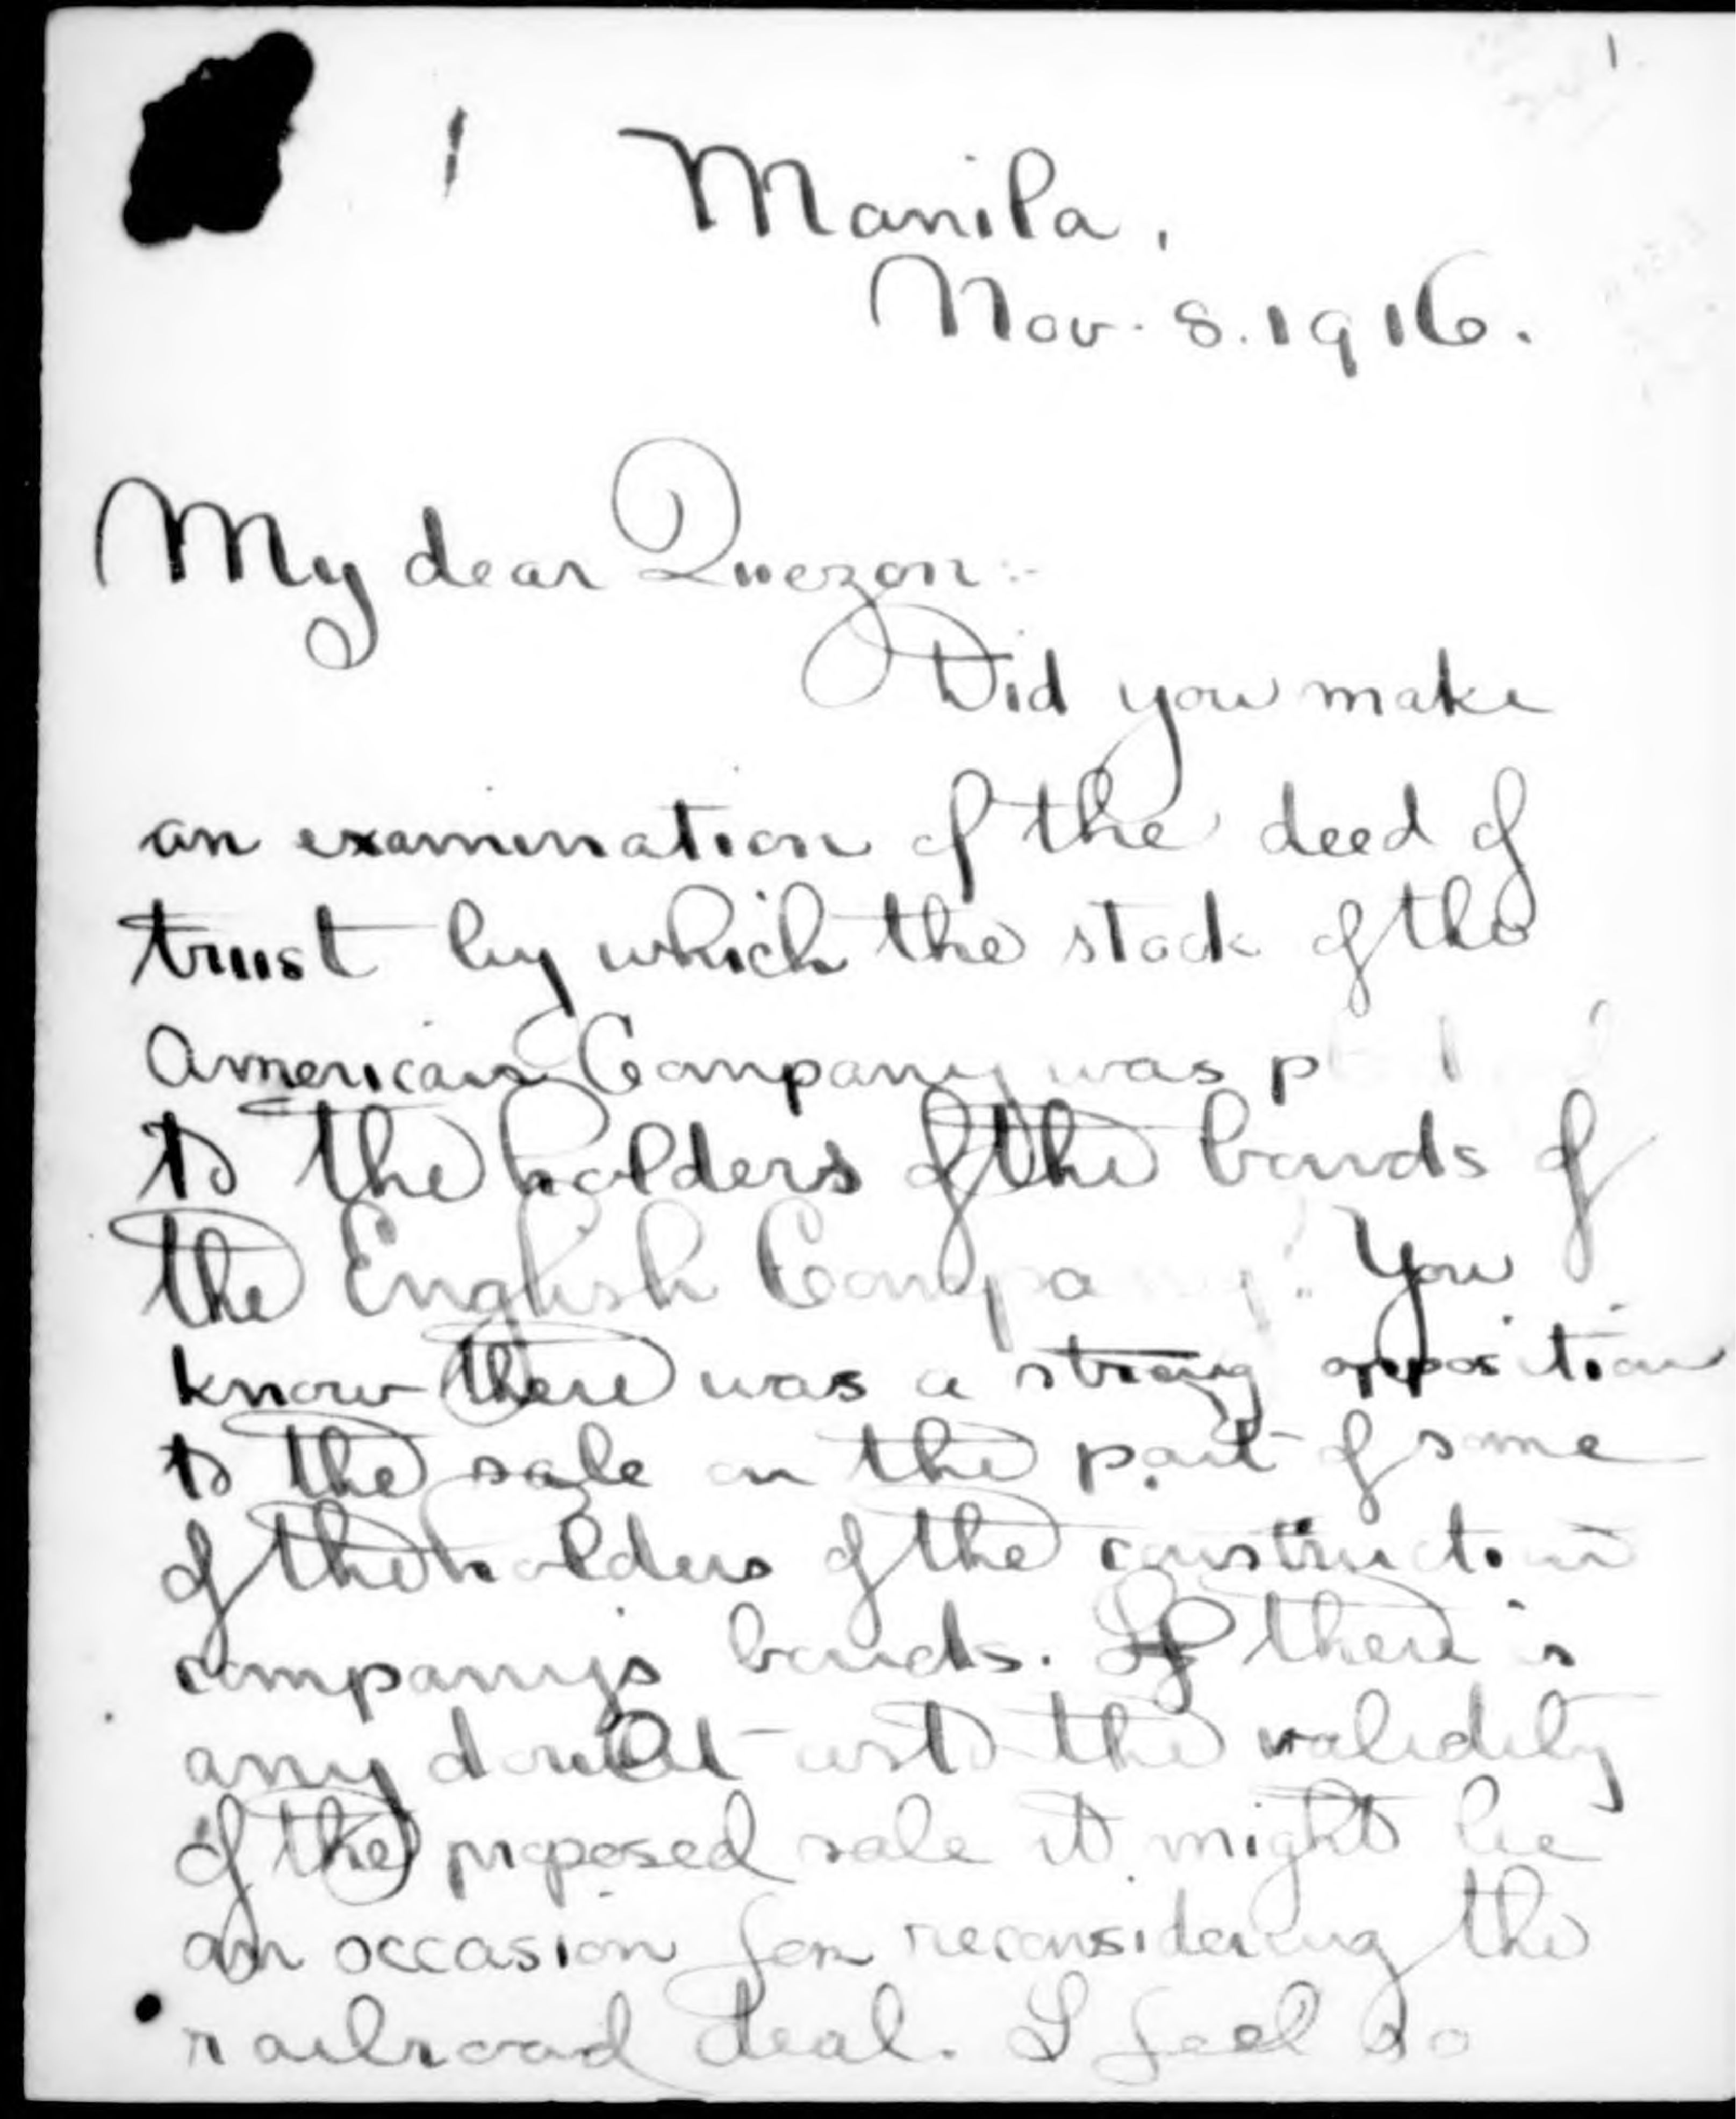 1
1
Manila,
Nov. 8. 1916.
My dear Quezon:-
Did you make
an examination of the deed of
trust by which the stock of the
American Company was
to the holders of the bonds of
the English Company. You
know there was a strong opposition
to the sale on the part of some
of the holders of the construction
company's bonds. If there is
any doubt as to the validity
of the proposed sale it might be
an occasion for reconsidering the
railroad deal. I feel so